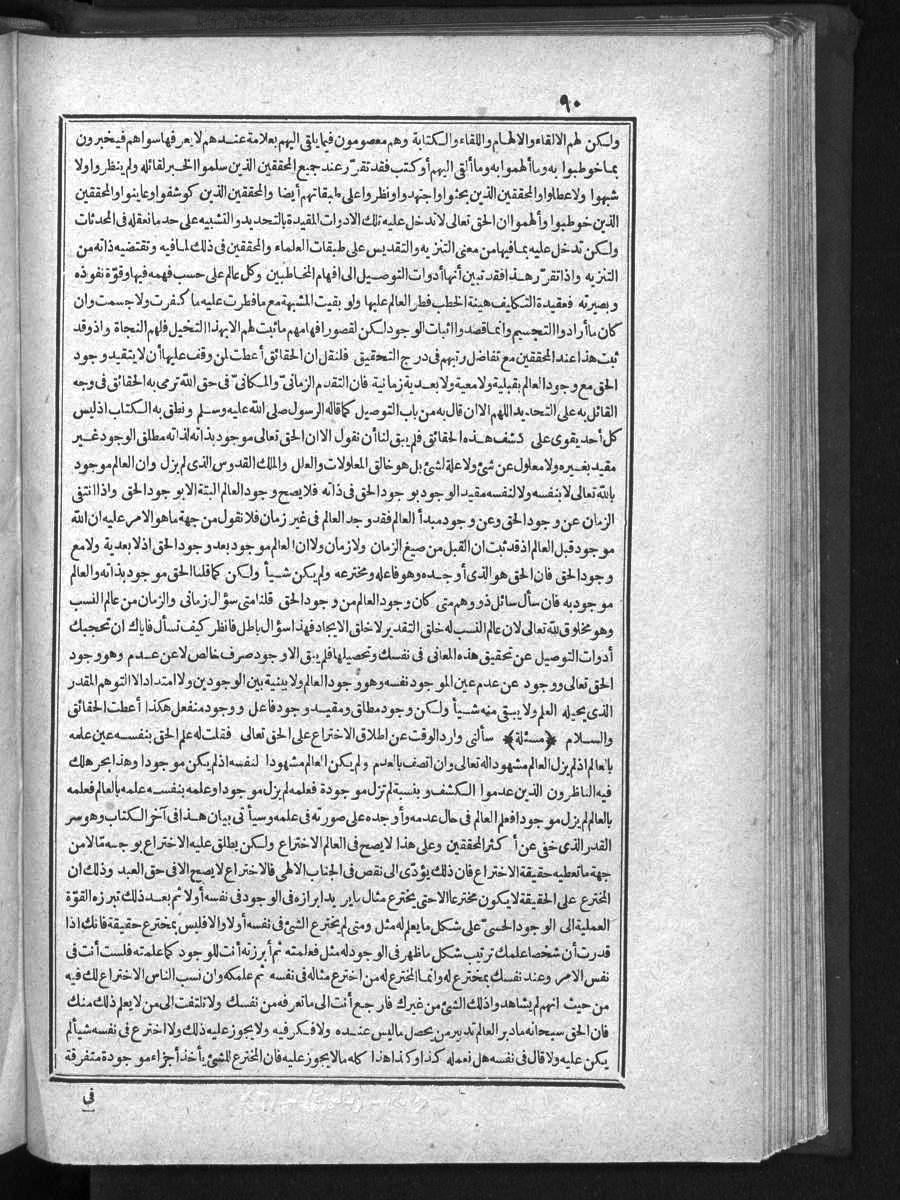 ٩٠
ولكن لهم الالقاء والالهام واللقاء والكتابة وهم معصومون فيما يلقى اليهم بعلامة عندهم لا يعرفها سواهم فيخبرون
بما خوطبوا به وما ألهموا به وما ألقى اليهم أو كتب فقد تقرّر عند جميع المحققين الذين سلموا الخبر لقائله ولم ينظروا ولا
شبهوا ولا عطلوا والمحققين الذين بحثوا واجتهدوا ونظروا على طبقاتهم أيضا والمحققين الذين كوشفوا وعاينوا والمحققين
الذين خوطبوا وألهموا ان الحق تعالى لا تدخل عليه تلك الادوات المقيدة بالتحديد والتشبيه على حد ما نعقله فى المحدثات
ولكن تدخل عليه بما فيها من معنى التنزيه والتقديس على طبقات العلماء والمحققين فى ذلك لما فيه وتقتضيه ذاته من
التنزيه واذا تقرّر هذا فقد تبين أنها أدوات التوصيل الى افهام المخاطبين وكل عالم على حسب فهمه فيها وقوّة نفوذه
وبصيرته فعقيدة التكليف هينة الخطب فطر العالم عليها ولو بقيت المشبهة مع ما فطرت عليه ما كفرت ولا جسمت وان
كان ما أرادوا التجسيم وانما قصدوا اثبات الوجود لكن لقصور افهامهم ما ثبت لهم الا بهذا التخيل فلهم النجاة واذ وقد
ثبت هذا عند المحققين مع تفاضل رتبهم فى درج التحقيق فلنقل ان الحقائق أعطت لمن وقف عليها أن لا يتقيد وجود
الحق مع وجود العالم بقبلية ولا معية ولا بعدية زمانية فان التقدم الزمانىّ والمكانىّ فى حق الله ترمى به الحقائق فى وجه
القائل به على التحديد اللهم الا ان قال به من باب التوصيل كما قاله الرسول صلى الله عليه وسلم ونطق به الكتاب اذ ليس
كل أحد يقوى على كشف هذه الحقائق فلم يبق لنا أن نقول الا ان الحق تعالى موجود بذاته لذاته مطلق الوجود غير
مقيد بغيره ولا معلول عن شئ ولا علة لشئ بل هو خالق المعلولات والعلل والملك القدوس الذى لم يزل وان العالم موجود
بالله تعالى لا بنفسه ولا لنفسه مقيد الوجود بوجود الحق فى ذاته فلا يصح وجود العالم البتة الا بوجود الحق واذا انتفى
الزمان عن وجود الحق وعن وجود مبدأ العالم فقد وجد العالم فى غير زمان فلا نقول من جهة ما هو الامر عليه ان الله
موجود قبل العالم اذ قد ثبت ان القبل من صيغ الزمان ولا زمان ولا ان العالم موجود بعد وجود الحق اذ لا بعدية ولا مع
وجود الحق فان الحق هو الذى أوجده وهو فاعله ومخترعه ولم يكن شيأ ولكن كما قلنا الحق موجود بذاته والعالم
موجود به فان سأل سائل ذو وهم متى كان وجود العالم من وجود الحق قلنا متى سؤال زمانى والزمان من عالم النسب
وهو مخلوق لله تعالى لان عالم النسب له خلق التقدير لا خلق الايجاد فهذا سؤال باطل فانظر كيف تسأل فاياك ان تحجبك
أدوات التوصيل عن تحقيق هذه المعانى فى نفسك وتحصيلها فلم يبق الا وجود صرف خالص لا عن عدم وهو وجود
الحق تعالى ووجود عن عدم عين الموجود نفسه وهو وجود العالم ولا بينية بين الوجودين ولا امتداد الا التوهم المقدر
الذى يحيله العلم ولا يبقى منه شيأ ولكن وجود مطلق ومقيد وجود فاعل ووجود منفعل هكذا أعطت الحقائق
والسلام ﴿مسئلة﴾ سألنى وارد الوقت عن اطلاق الاختراع على الحق تعالى فقلت له علم الحق بنفسه عين علمه
بالعالم اذ لم يزل العالم مشهودا له تعالى وان اتصف بالعدم ولم يكن العالم مشهودا لنفسه اذ لم يكن موجودا وهذا بحر هلك
فيه الناظرون الذين عدموا الكشف وبنسبة لم تزل موجودة فعلمه لم يزل موجودا وعلمه بنفسه علمه بالعالم فعلمه
بالعالم لم يزل موجودا فعلم العالم فى حال عدمه وأوجده على صورته فى علمه وسيأتى بيان هذا فى آخر الكتاب وهو سر
القدر الذى خفى عن أكثر المحققين وعلى هذا لا يصح فى العالم الاختراع ولكن يطلق عليه الاختراع بوجه مّا لا من
جهة ما تعطيه حقيقة الاختراع فان ذلك يؤدّى الى نقص فى الجناب الالهى فالاختراع لا يصح الا فى حق العبد وذلك ان
المخترع على الحقيقة لا يكون مخترعا الا حتى يخترع مثال ما يريد ابرازه فى الوجود فى نفسه أولا ثم بعد ذلك تبرزه القوّة
العملية الى الوجود الحسىّ على شكل ما يعلم له مثل ومتى لم يخترع الشئ فى نفسه أولا والا فليس بمخترع حقيقة فانك اذا
قدرت أن شخصا علمك ترتيب شكل ما ظهر فى الوجود له مثل فعلمته ثم أبرزته أنت للوجود كما علمته فلست أنت فى
نفس الامر وعند نفسك بمخترع له وانما المخترع له من اخترع مثاله فى نفسه ثم علمكه وان نسب الناس الاختراع لك فيه
من حيث انهم لم يشاهدوا ذلك الشئ من غيرك فارجع أنت الى ما تعرفه من نفسك ولا تلتفت الى من لا يعلم ذلك منك
فان الحق سبحانه ما دبر العالم تدبير من يحصل ما ليس عنده ولا فكر فيه ولا يجوز عليه ذلك ولا اخترع فى نفسه شيألم
يكن عليه ولا قال فى نفسه هل نعمله كذا وكذا هذا كله ما لا يجوز عليه فان المخترع للشئ يأخذ أجزاء موجودة متفرقة
فى